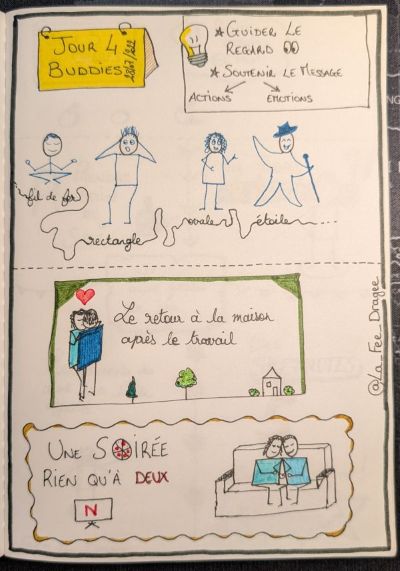 JOUR 4
BUDDIES
GUIDER LE
REGARD
SOUTENIR LE MESSAGE
ACTIONS
ÉMOTIONS
fil de fer
rectangle
ovale
étoile...
Le retour à la maison
après le travail
@La_Fée_Dragée
UNE SOIRÉE
RIEN QU'À DEUX
N